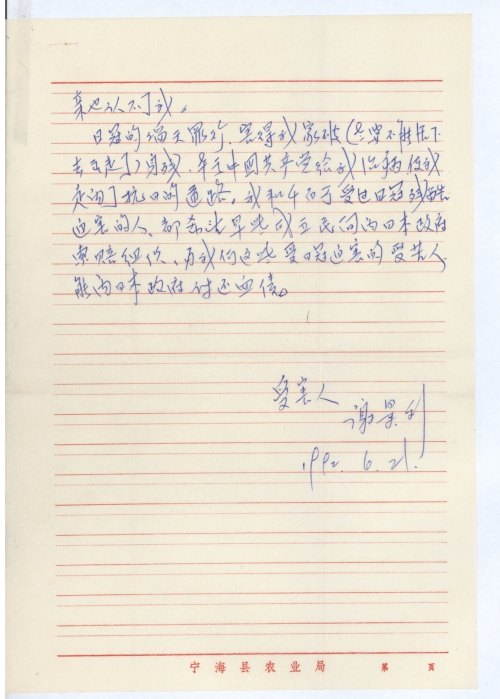 亲也认不了我。
日冠的滔天罪行，害得我家破（老婆不能生下
去走了）身残，幸于中国共产党给我治病使我
走向了抗日的道路。我和千百万受过日冠残酷
迫害的人，都希望早些成立民间向日本政府
索赔组织、为我们这些受日冠迫害的受苦人
能向日本政府付还血债。
受害人
谢景利
1992.6.21.
宁海县农业局 第 页